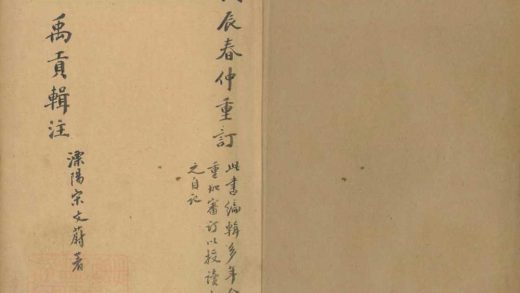 辰春仲重訂
此書編輯多年
重加審訂以授讀
之自記
禹貢輯注
溧陽宋文蔚著